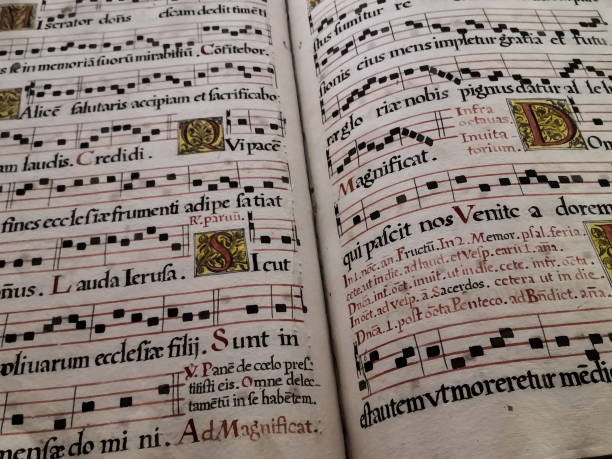 iserator dons escam dedit timēti
s se in memoriā suorū mirabiliū. Cōfitebor.
Alicē salutaris accipiam et sacrificabo
am laudis. Credidi. Qvi pacē
fines ecclesiæ frumenti adipe satiat
R. parvū.
ōnus. Lauda Ierusa. Sicut
oliuarum ecclesiæ filij. Sunt in
V. Panē de cœlo pres-
titisti eis. Omne delec-
tamētū in se habētem.
mensæ do mi ni. Ad Magnificat.
stus sumitur re
sionis eius mens impletur gratia et futu
ræ glo riæ nobis pignus datur al le
Infra
octauas
Inuita
torium.
Dom
Magnificat.
qui pascit nos Venite a dorem
In 1. noc. an. Fructū. In 2. Memor. psal. feria
Dncā. inf. oct. inuit. ut in die. cetera ut in die.
In oct. ad Vesp. ā Sacerdos.
Dncā. 1. post octa. Penteco. ad Bn̄dict. añā
estautem vt moreretur mēdic